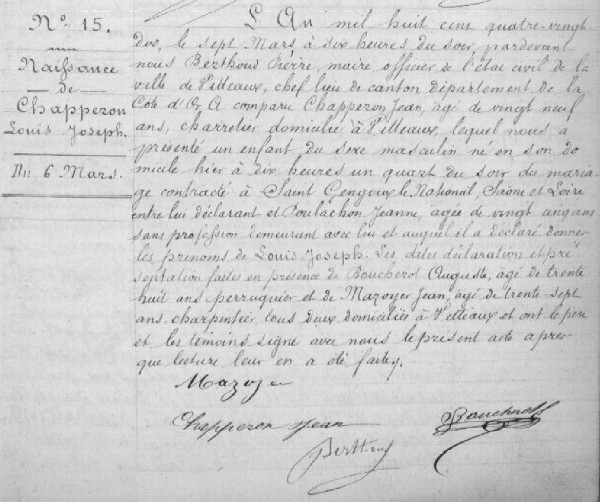 N° 15.
Naissance
de
Chapperon
Louis Joseph.
Du 6 Mars.
L'An mil huit cent quatre-vingt
dix, le sept Mars à dix heures du soir, pardevant
nous Berthoud Pierre, maire officier de l'état civil de la
ville de Vitteaux, chef lieu de canton département de la
Côte d'Or A comparu Chapperon Jean, agé de vingt neuf
ans, charretier domicilié à Vitteaux, lequel nous a
présenté un enfant du sexe masculin né en son do
micile hier à dix heures un quart du soir du maria
ge contracté à Saint Gengoux le National, Saône et Loire
entre lui déclarant et Poulachon Jeanne, agée de vingt ans
sans profession demeurant avec lui et auquel il a déclaré donner
les prénoms de Louis Joseph. Les dites déclaration et pré
sentation faites en présence de Boucherot Auguste, agé de trente
huit ans perruquier et de Mazoyer Jean, agé de trente sept
ans, charpentier, tous deux domiciliés à Vitteaux et ont le père
et les témoins signé avec nous le présent acte après
que lecture leur en a été faite.
Mazoyer
Chapperon Jean
Boucherot